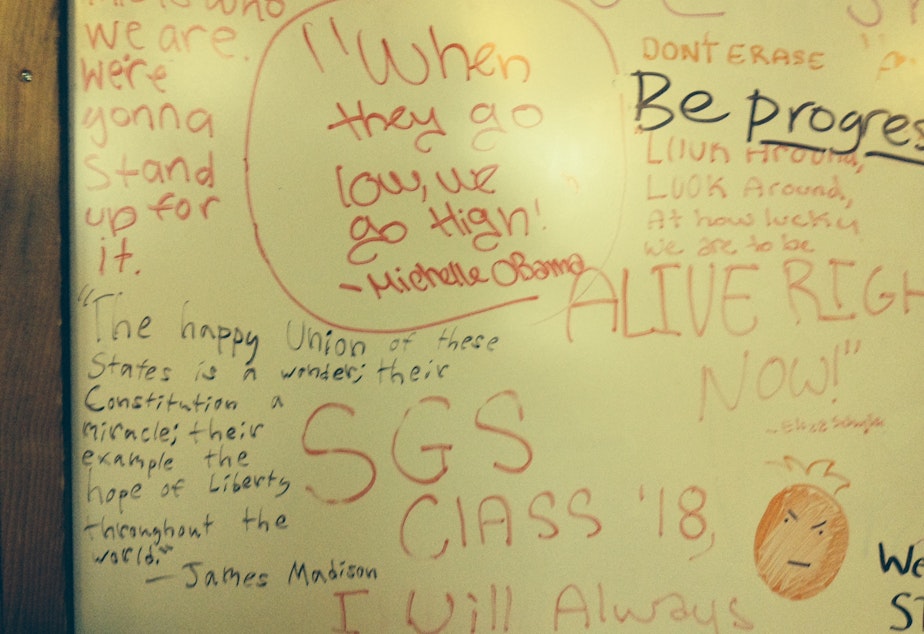 who
we are.
we're
gonna
stand
up for
it.
"When
they go
low, we
go High!
- Michelle OBama
DON'T ERASE
Be progres
Around,
LOOK Around,
At how lucky
we are to be
ALIVE RIGH
NOW!"
"The happy Union of these
States is a wonder; their
Constitution a
miracle; their
example the
hope of Liberty
throughout the
world."
- James Madison
SGS
ClASS '18,
I Will Always
We
ST